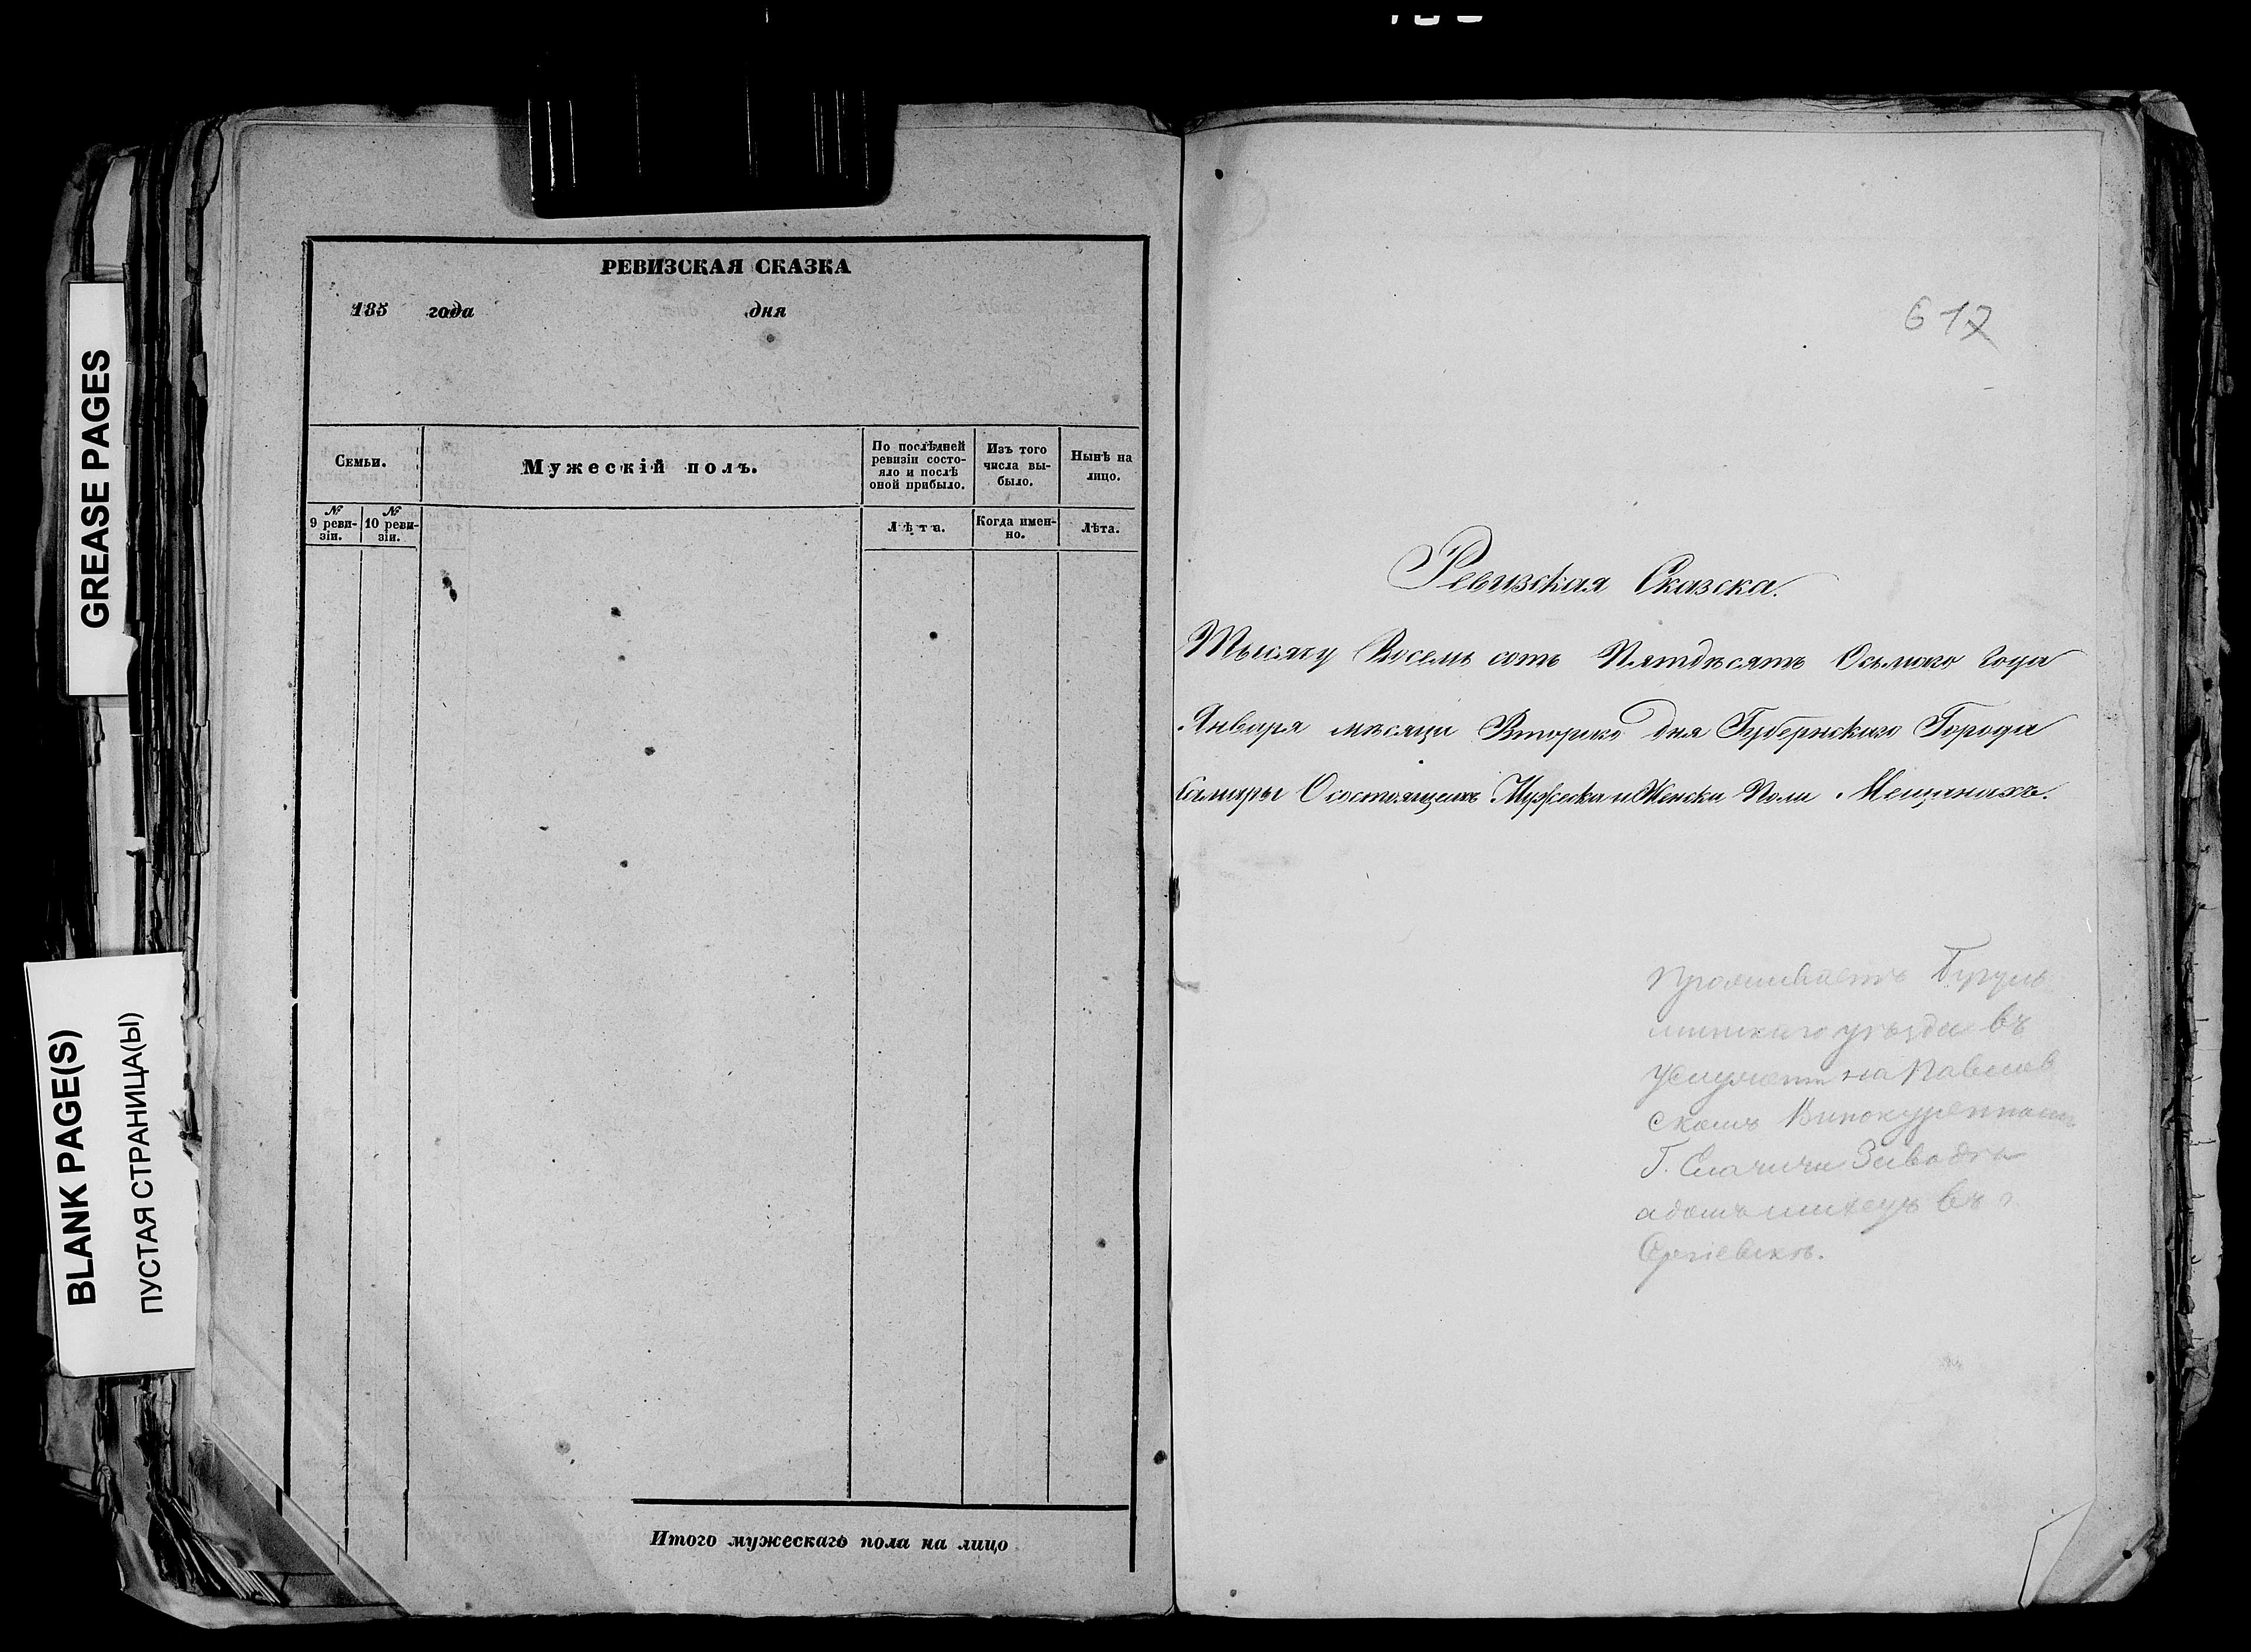 GREASE PAGES
BLANK PAGE(S)
ПУСТАЯ СТРАНИЦА(Ы)
РЕВИЗСКАЯ СКАЗКА
185 года дня
Семьи.
Мужескій полъ.
По послѣдней
ревизіи состо-
яло и послѣ
оной прибыло.
Изъ того
числа вы-
было.
Нынѣ на
лицо.
№
9 реви-
зіи.
№
10 реви-
зіи.
Лѣта.
Когда имен-
но.
Лѣта.
Итого мужескаго пола на лицо
617
Ревизская Сказска.
Тысячу Восемь сотъ Пятдѣсятъ Осьмаго Года
Января мѣсяца Втораго дня Губернскаго Города
Самары О состоящихъ Мужеска и Женска Пола Мещанахъ.
Проживаетъ Бугуль
минскаго уѣзда въ
на Павлов
скомъ Винокуренномъ
Г. Заводѣ
въ г.
Сергіевскъ.